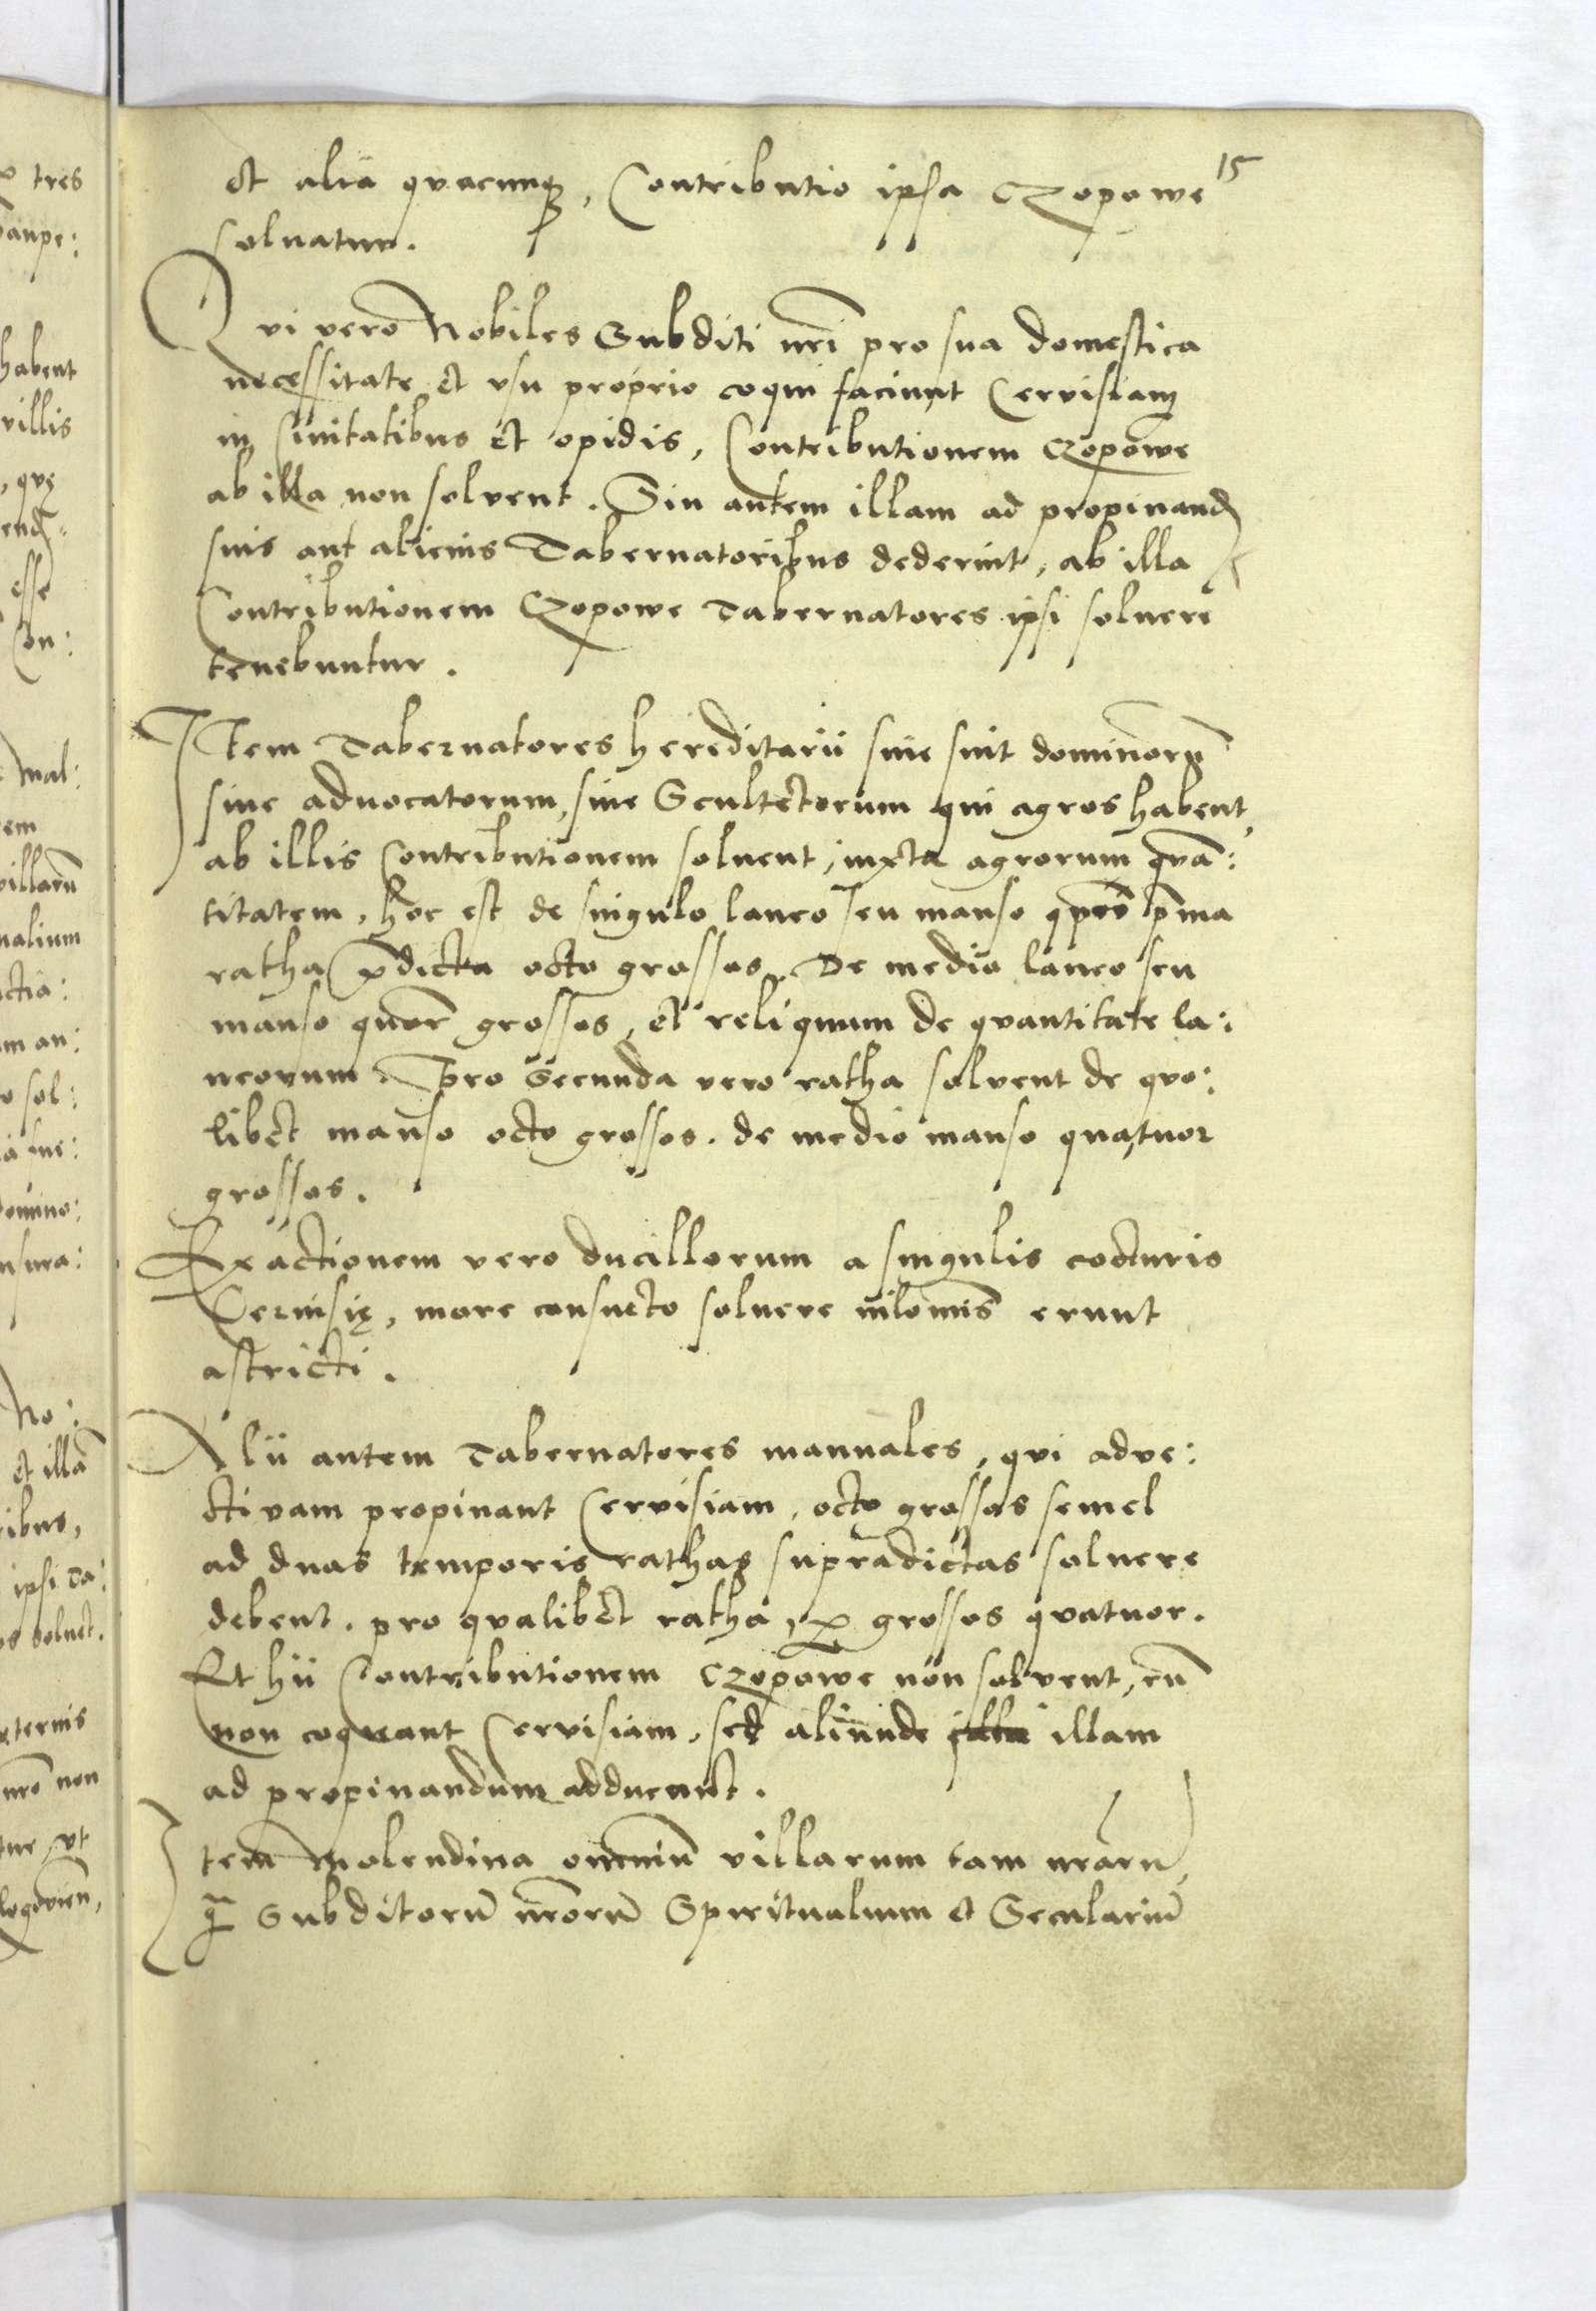 15
et alia quacunq, Contributio ipsa Czopowe
soluatur.
Qui vero Nobiles Subditi nri pro sua domestica
necessitate et vsu proprio coqui faciunt Cervisiam
in Ciuitatibus et opidis, Contributionem Czopowe
ab illa non solvent. Sin autem illam ad propinand
suis aut alienis Tabernatoribus dederint, ab illa
Contributionem Czopowe Tabernatores ipsi soluere
tenebuntur.
Item Tabernatores hereditarii siue sint dominorū
siue aduocatorum, siue Scultetorum qui agros habent,
ab illis Contributionem soluent, iuxta agrorum quā:
titatem, hoc est de singulo laneo seu manso pma
ratha pdicta octo grossos. De medio laneo seu
manso quor grossos, et reliquum de quantitate la:
neorum. Pro Secunda vero ratha solvent de quo:
libet manso octo grossos. de medio manso quatuor
grossos.
Exactionem vero ducillorum a singulis cocturis
Ceruisię, more consueto soluere nilomis erunt
astricti.
Alii autem Tabernatores manuales, qui adve:
ctivam propinant Cervisiam, octo grossos semel
ad duas temporis rathas supradictas soluere
debent. pro qualibet ratha, p grossos quatuor.
Et hii Contributionem Czopowe non solvent, cū
non coqueant Cervisiam, sed aliunde illam
ad propinandum adducunt.
Item Molendina omniū villarum tam nrarū,
q̄ Subditorū nrorū Spiritualium et Seculariū
tres
habent
villis
, que
esse
Con:
Mal:
villarū
nalium
ctia:
o sol:
No:
et illā
ribus,
ipsi Ta:
nro non